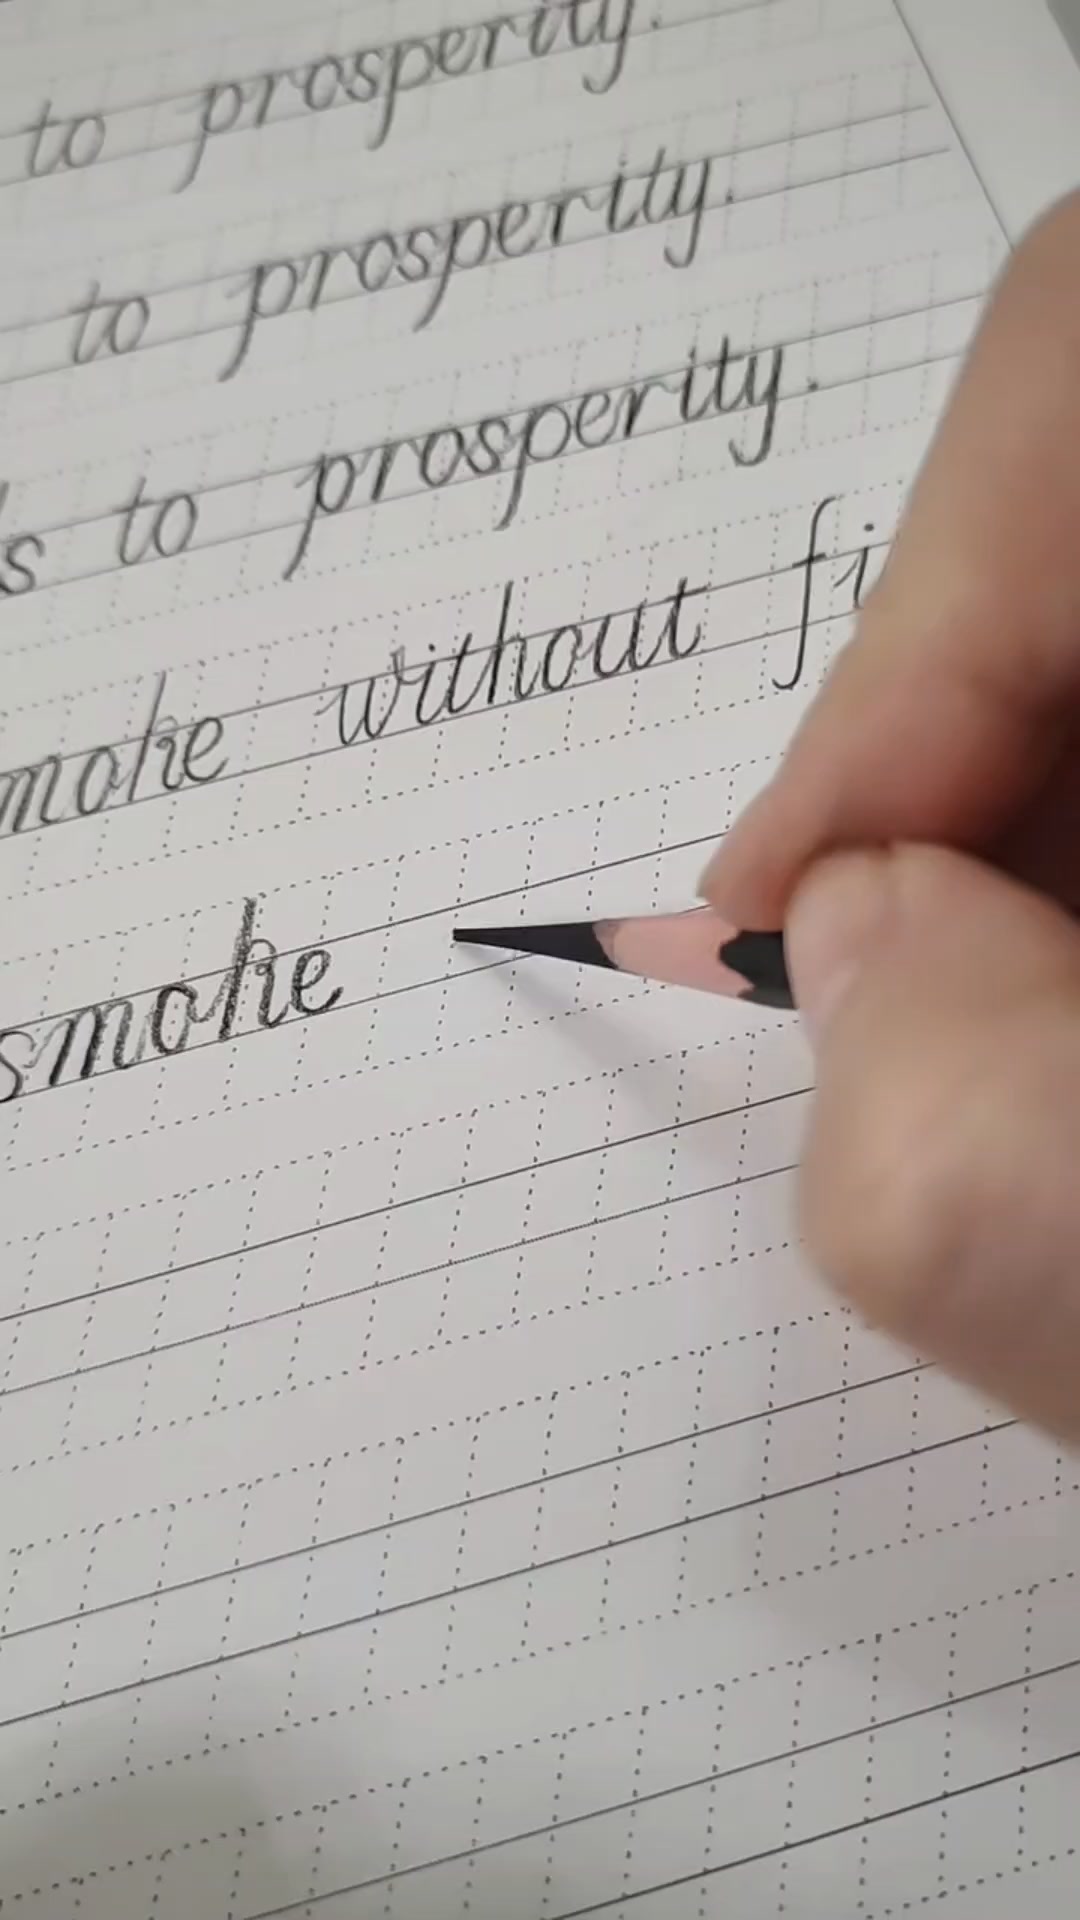 to prosperity.
to prosperity.
s to prosperity.
smoke without fi
smoke